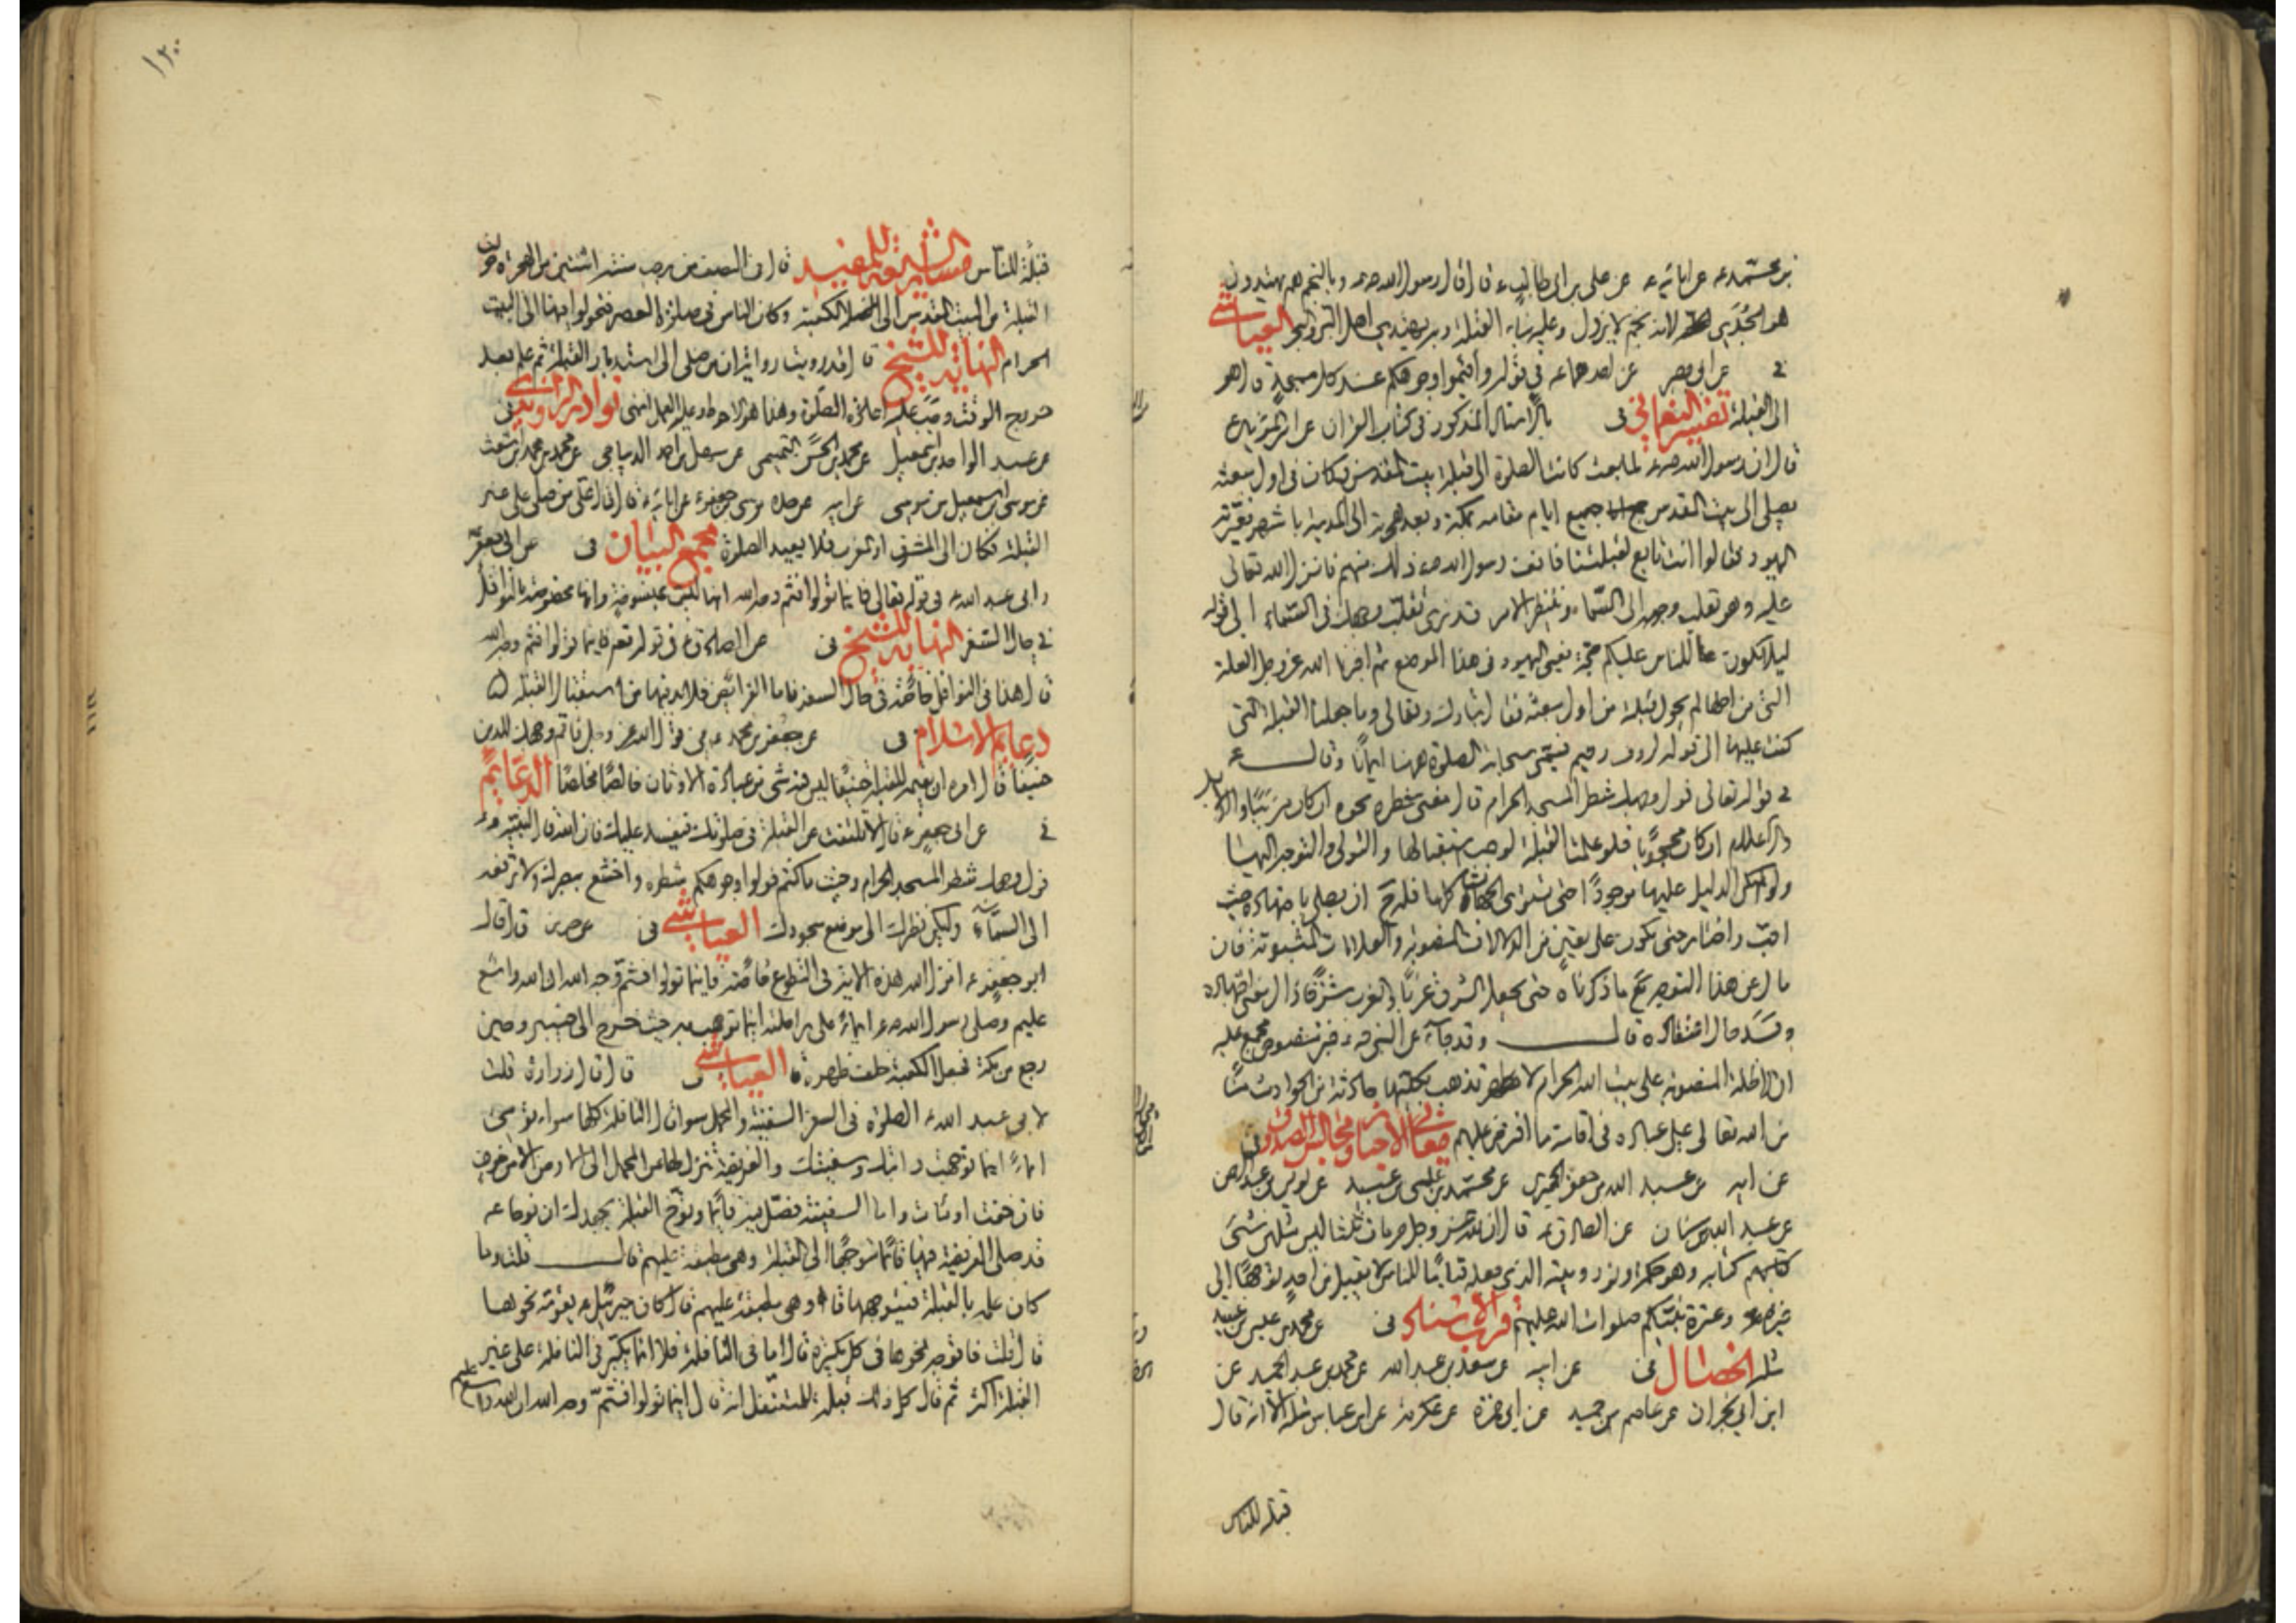 بن محمد ع عن ابائه ع عن علي بن ابي طالب ع قال قال رسول الله ص وبالنجم هم يهتدون
هو الجدي لانه نجم لا يزول وعليه بناء القبلة وبه يهتدي اهل البر والبحر العياشي
عن ابي بصير عن احدهما ع في قوله واقيموا وجوهكم عند كل مسجد قال هو
الى القبلة تفسير النعماني في المذكور في كتاب القران عن امير المؤمنين ع
قال ان رسول الله ص لما بعث كانت الصلوة الى قبلة بيت المقدس فكان في اول مبعثه
يصلي الى بيت المقدس جميع ايام مقامه بمكة وبعد هجرته الى المدينة باشهر فعيرته
اليهود وقالوا انت تابع لقبلتنا فانف رسول الله ص ذلك منهم فانزل الله تعالى
عليه وهو يقلب وجهه الى السماء وينتظر الامر قد نرى تقلب وجهك في السماء الى قوله
ليلا يكون للناس عليكم حجة يعني اليهود في هذا الموضع ثم اخبرنا الله عز وجل العلة
التي من اجلها لم يحول قبلته من اول مبعثه فقال تبارك وتعالى وما جعلنا القبلة التي
كنت عليها الى قوله لرءوف رحيم فسمى سبحانه الصلوة ههنا ايمانا وقال ع
في قوله تعالى فول وجهك شطر المسجد الحرام قال معنى شطره نحوه ان كان مرئيا وبالدلايل
والاعلام ان كان محجوبا فلو علمت القبلة لوجب استقبالها والتولي والتوجه اليها
ولو لم يكن الدليل عليها موجودا حتى تستوي الجهات كلها فله ان يصلي باجتهاده حيث
احب واختار حتى يكون على يقين من الدلالات المنصوبة والعلامات المثبوتة فان
مال عن هذا التوجه مع ما ذكرناه حتى يجعل الشرق غربا والغرب شرقا زال معنى اجتهاده
وفسد حال اعتقاده قال وقد جاء عن النبي ص خبر منصوص مجمع عليه
ان الادلة المنصوبة على بيت الله الحرام لا تذهب بكليتها بحادثة من الحوادث منا
من الله تعالى على عباده في اقامة ما افترض عليهم معاني الاخبار ومجالس الصدوق في
عن ابيه عن عبد الله بن جعفر الحميري عن محمد بن عيسى بن عبيد عن يونس بن عبد الرحمن
عن عبد الله بن سنان عن الصادق ع قال ان لله عز وجل حرمات ثلثا ليس مثلهن شيء
كتابه وهو حكمته ونوره وبيته الذي جعله قياما للناس لا يقبل من احد توجها الى
غيره وعترة نبيكم صلوات الله عليهم قرب الاسناد في عن محمد بن عيسى بن عبيد
مثله الخصال في عن ابيه عن سعد بن عبد الله عن محمد بن عبد الحميد عن
ابن ابي نجران عن عاصم بن حميد عن ابي حمزة عن عكرمة عن ابن عباس مثله الا انه قال
قبلة للناس
١٢٠
قبلة للناس مسار الشيعة للمفيد قال في النصف من رجب سنة اثنتين من الهجرة حولت
القبلة من البيت المقدس الى الكعبة وكان الناس في صلوة العصر فتحولوا منها الى البيت
الحرام النهاية للشيخ قال قد رويت رواية ان من صلى الى استدبار القبلة ثم علم بعد
خروج الوقت وجب عليه اعادة الصلوة وهذا هو الاحوط وعليه العمل انتهى نوادر الراوندي في
عن عبد الواحد بن اسمعيل عن محمد بن الحسن التميمي عن سهل بن احمد الديباجي عن محمد بن محمد بن الاشعث
عن موسى بن اسمعيل بن موسى عن ابيه عن جده موسى بن جعفر ع عن ابائه ع قال قال علي ع من صلى على غير
القبلة فكان الى المشرق او المغرب فلا يعيد الصلوة مجمع البيان في عن ابي جعفر
وابي عبد الله ع في قوله تعالى فاينما تولوا فثم وجه الله انها ليست بمنسوخة وانها مخصوصة بالنوافل
في حال السفر النهاية للشيخ في عن الصادق ع في قوله تعم فاينما تولوا فثم وجه الله
قال هذا في النوافل خاصة في حال السفر فاما الفرائض فلا بد فيها من استقبال القبلة
دعايم الاسلام في عن جعفر بن محمد ع في قول الله عز وجل فاقم وجهك للدين
حنيفا قال امره ان يقيمه للقبلة حنيفا ليس فيه شيء من عبادة الاوثان خالصا مخلصا الدعايم
في عن ابي جعفر ع قال لا تلتفت عن القبلة في صلوتك فيفسد عليك فان الله قال لنبيه ص
فول وجهك شطر المسجد الحرام وحيث ما كنتم فولوا وجوهكم شطره واخشع ببصرك ولا ترفعه
الى السماء وليكن نظرك الى موضع سجودك العياشي في عن حريز قال قال
ابو جعفر ع انزل الله هذه الاية في التطوع خاصة فاينما تولوا فثم وجه الله ان الله واسع
عليم وصلى رسول الله ص ايماء على راحلته اينما توجهت به حيث خرج الى خيبر وحين
رجع من مكة وجعل الكعبة خلف ظهره العياشي في قال قال زرارة قلت
لابي عبد الله ع الصلوة في السفر السفينة والمحمل سواء قال النافلة كلها سواء تومي
ايماء اينما توجهت دابتك وسفينتك والفريضة تنزل لها عن المحمل الى الارض الا من خوف
فان خفت اومات واما السفينة فصل فيها قائما وتوخ القبلة بجهدك ان نوحا ع
قد صلى الفريضة فيها قائما متوجها الى القبلة وهي مطبقة عليهم قال قلت وما
كان علمه بالقبلة فيتوجهها وهي مطبقة عليهم قال كان جبرئيل ع يقومه نحوها
قال قلت فاتوجه نحوها في كل تكبيرة قال اما في النافلة فلا انما يكبر في النافلة على غير
القبلة اكثر ثم قال كل ذلك قبلة للمتنفل انه قال اينما تولوا فثم وجه الله ان الله واسع عليم